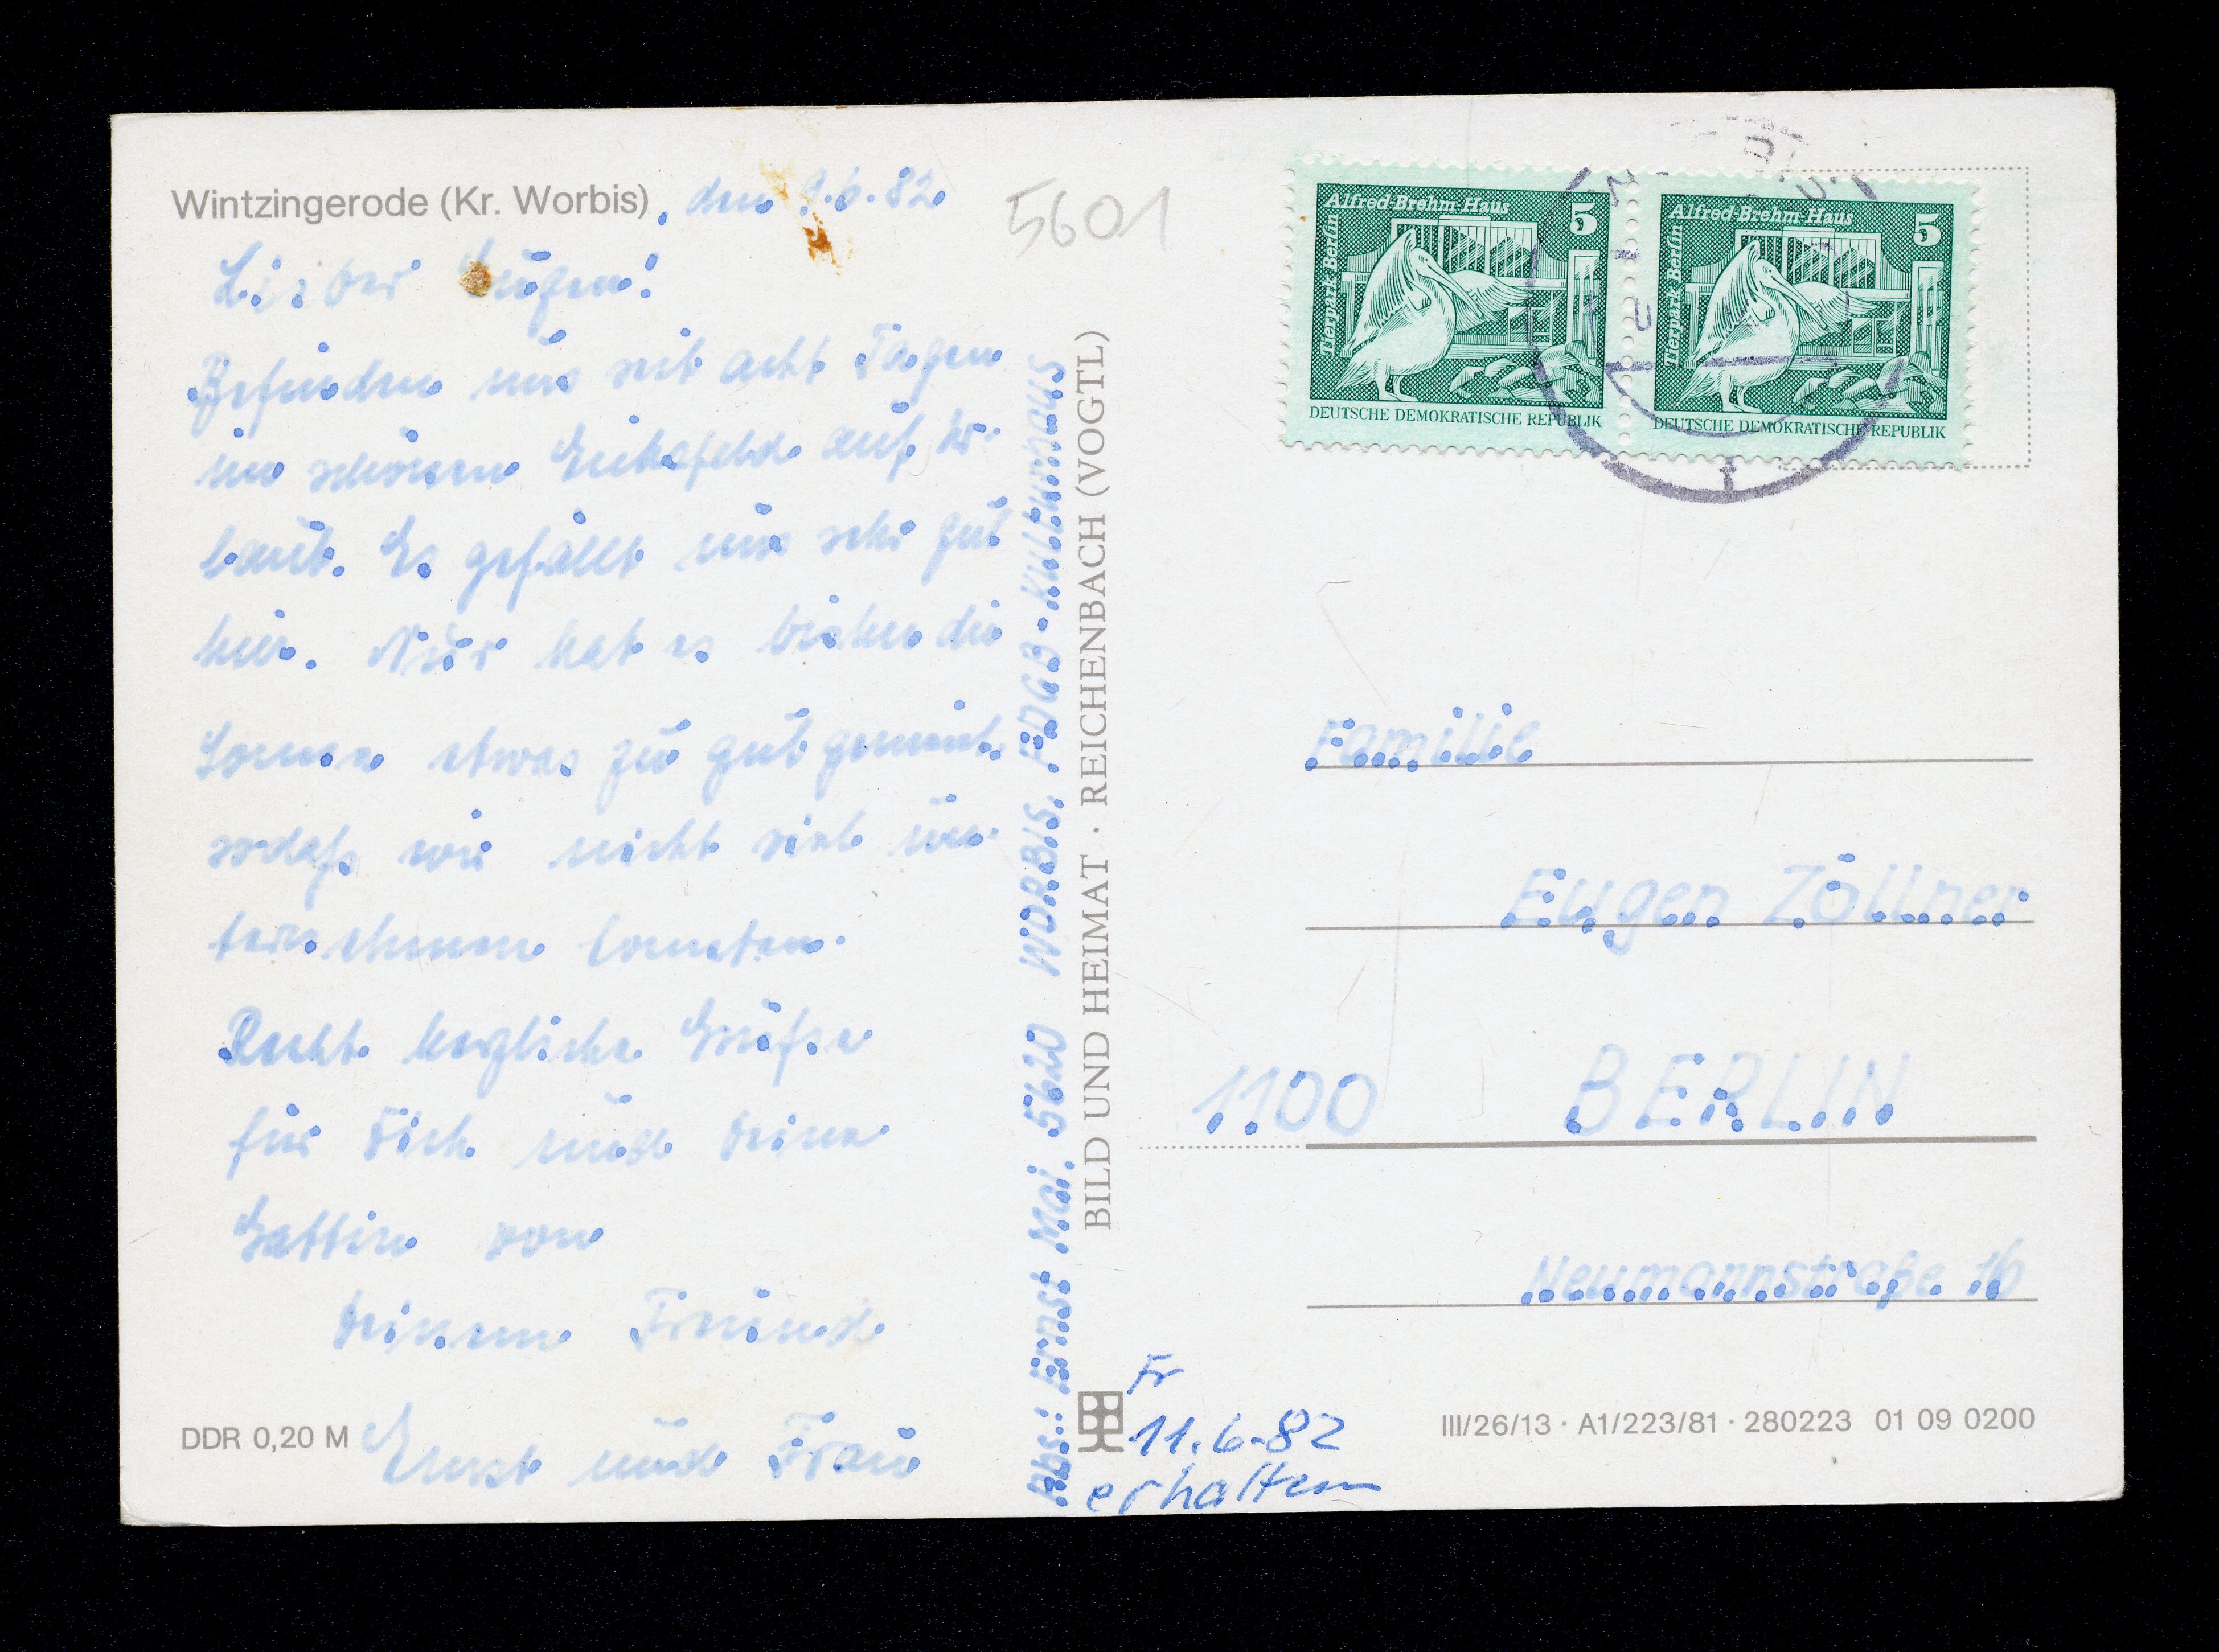 Wintzingerode (Kr. Worbis), den 9.6.82
Lieber Eugen!
Befinden uns seit acht Tagen
im schönen Eichsfeld auf Ur-
laub. Es gefällt uns sehr gut
hier. Nur hat es bisher die
Sonne etwas zu gut gemeint,
sodaß wir nicht viel un-
ternehmen konnten.
Recht herzliche Grüße
für Dich und Deine
Gattin von
Deinem Freund
Ernst und Frau
DDR 0,20 M
5601
Abs.: Ernst Mai. 5620 WORBIS. FDGB-
BILD UND HEIMAT · REICHENBACH (VOGTL)
Alfred-Brehm-Haus
5
Tierpark Berlin
DEUTSCHE DEMOKRATISCHE REPUBLIK
Alfred-Brehm-Haus
5
Tierpark Berlin
DEUTSCHE DEMOKRATISCHE REPUBLIK
Familie
Eugen Zöllner
1100 BERLIN
Neumannstraße 16
Fr
11.6.82
erhalten
III/26/13 · A1/223/81 · 280223 01 09 0200